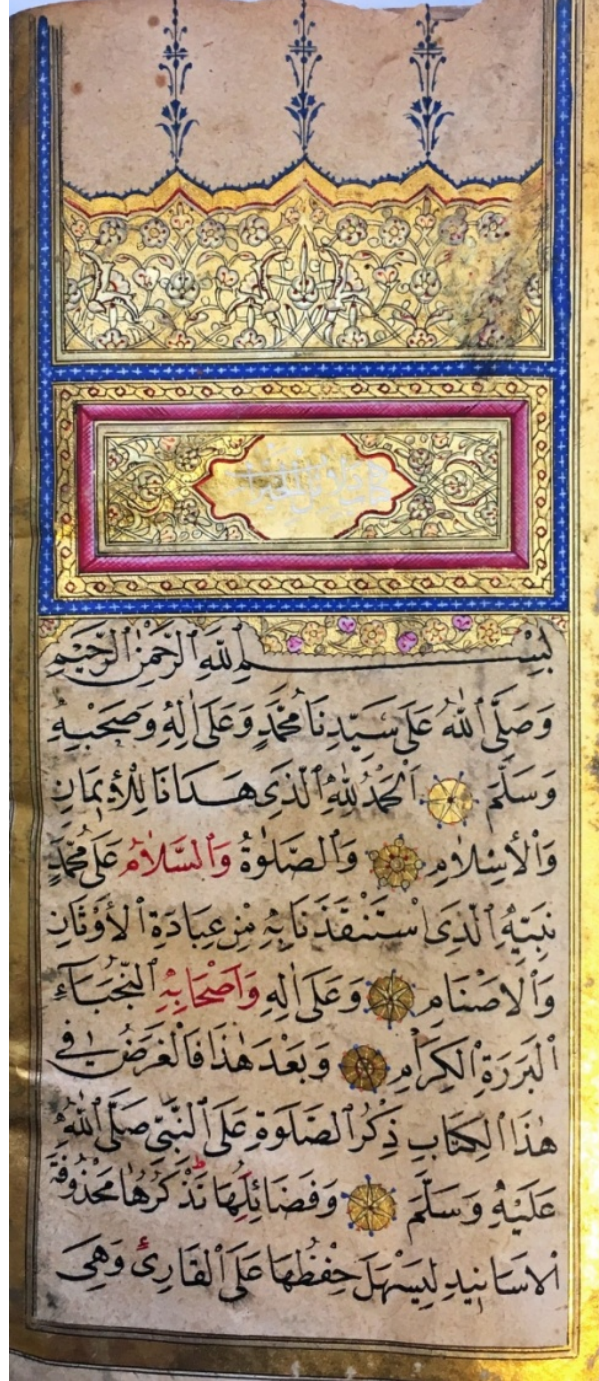 بِسْمِ ٱللّٰهِ ٱلرَّحْمٰنِ ٱلرَّحٖيمِ
وَصَلَّى ٱللّٰهُ عَلٰى سَيِّدِنَا مُحَمَّدٍ وَعَلٰى اٰلِهٖ وَصَحْبِهٖ
وَسَلَّمَ اَلْحَمْدُ لِلّٰهِ ٱلَّذٖى هَدَانَا لِلْاٖيمَانِ
وَٱلْاِسْلَامِ وَٱلصَّلٰوةُ وَٱلسَّلَامُ عَلٰى مُحَمَّدٍ
نَبِيِّهِ ٱلَّذِى ٱسْتَنْقَذَنَا بِهٖ مِنْ عِبَادَةِ ٱلْاَوْثَانِ
وَٱلْاَصْنَامِ وَعَلٰى اٰلِهٖ وَاَصْحَابِهِ ٱلنُّجَبَآءِ
ٱلْبَرَرَةِ ٱلْكِرَامِ وَبَعْدَ هٰذَا فَالْغَرَضُ فٖى
هٰذَا ٱلْكِتَابِ ذِكْرُ ٱلصَّلٰوةِ عَلَى ٱلنَّبِىِّ صَلَّى ٱللّٰهُ
عَلَيْهِ وَسَلَّمَ وَفَضَائِلِهَا نَذْكُرُهَا مَحْذُوفَةَ
ٱلْاَسَانٖيدِ لِيَسْهُلَ حِفْظُهَا عَلَى ٱلْقَارِئِ وَهِىَ